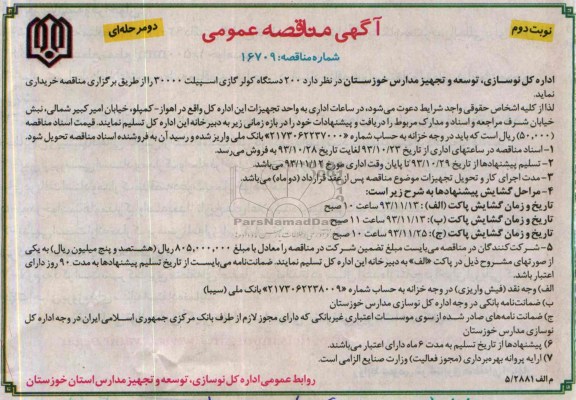 نوبت دوم
آگهی مناقصه عمومی
دو مرحله‌ای
شماره مناقصه: ۱۶۷۰۹
اداره کل نوسازی، توسعه و تجهیز مدارس خوزستان در نظر دارد ۲۰۰ دستگاه کولر گازی اسپیلت ۳۰۰۰۰ را از طریق برگزاری مناقصه خریداری
نماید.
لذا از کلیه اشخاص حقوقی واجد شرایط دعوت می‌شود، در ساعات اداری به واحد تجهیزات این اداره کل واقع در اهواز- کمپلو، خیابان امیر کبیر شمالی، نبش
خیابان شرف مراجعه و اسناد و مدارک مربوط را دریافت و پیشنهادات خود را در بازه زمانی زیر به دبیرخانه این اداره کل تسلیم نمایند. قیمت اسناد مناقصه
(۵۰,۰۰۰) ریال است که باید در وجه خزانه به حساب شماره «۲۱۷۳۰۶۲۲۳۷۰۰۰» بانک ملی واریز شده و رسید آن به فروشنده اسناد مناقصه تحویل شود.
۱- اسناد مناقصه در ساعتهای اداری از تاریخ ۹۳/۱۰/۲۳ لغایت تاریخ ۹۳/۱۰/۲۸ به فروش می‌رسد.
۲- تسلیم پیشنهادها از تاریخ ۹۳/۱۰/۲۹ تا پایان وقت اداری مورخ ۹۳/۱۱/۱۲ می‌باشد.
۳- مدت اجرای کار و تحویل تجهیزات موضوع مناقصه پس از عقد قرارداد (دو ماه) می‌باشد.
۴- مراحل گشایش پیشنهادها به شرح زیر است:
تاریخ و زمان گشایش پاکت (الف): ۹۳/۱۱/۱۳ ساعت ۱۰ صبح
تاریخ و زمان گشایش پاکت (ب): ۹۳/۱۱/۱۳ ساعت ۱۱ صبح
تاریخ و زمان گشایش پاکت (ج): ۹۳/۱۱/۲۵ ساعت ۱۰ صبح
۵- شرکت کنندگان در مناقصه می‌بایست مبلغ تضمین شرکت در مناقصه را معادل با مبلغ ۸۰۵,۰۰۰,۰۰۰ ریال (هشتصد و پنج میلیون ریال) به یکی
از صورتهای مشروح ذیل در پاکت «الف» به دبیرخانه این اداره کل تسلیم نمایند. ضمانت‌نامه می‌بایست از تاریخ تسلیم پیشنهادها به مدت ۹۰ روز دارای
اعتبار باشد.
الف) وجه نقد (فیش واریزی) در وجه خزانه به حساب شماره «۲۱۷۳۰۶۲۲۳۸۰۰۹» بانک ملی (سیبا)
ب) ضمانت‌نامه بانکی در وجه اداره کل نوسازی مدارس خوزستان
ج) ضمانت نامه‌های صادر شده از سوی موسسات اعتباری غیربانکی که دارای مجوز لازم از طرف بانک مرکزی جمهوری اسلامی ایران در وجه اداره کل
نوسازی مدارس خوزستان
۶) پیشنهادها از تاریخ تسلیم به مدت ۶ ماه دارای اعتبار می‌باشند.
۷) ارایه پروانه بهره‌برداری (مجوز فعالیت) وزارت صنایع الزامی است.
م الف ۵/۲۸۸۱
روابط عمومی اداره کل نوسازی، توسعه و تجهیز مدارس استان خوزستان
ParsNamadData